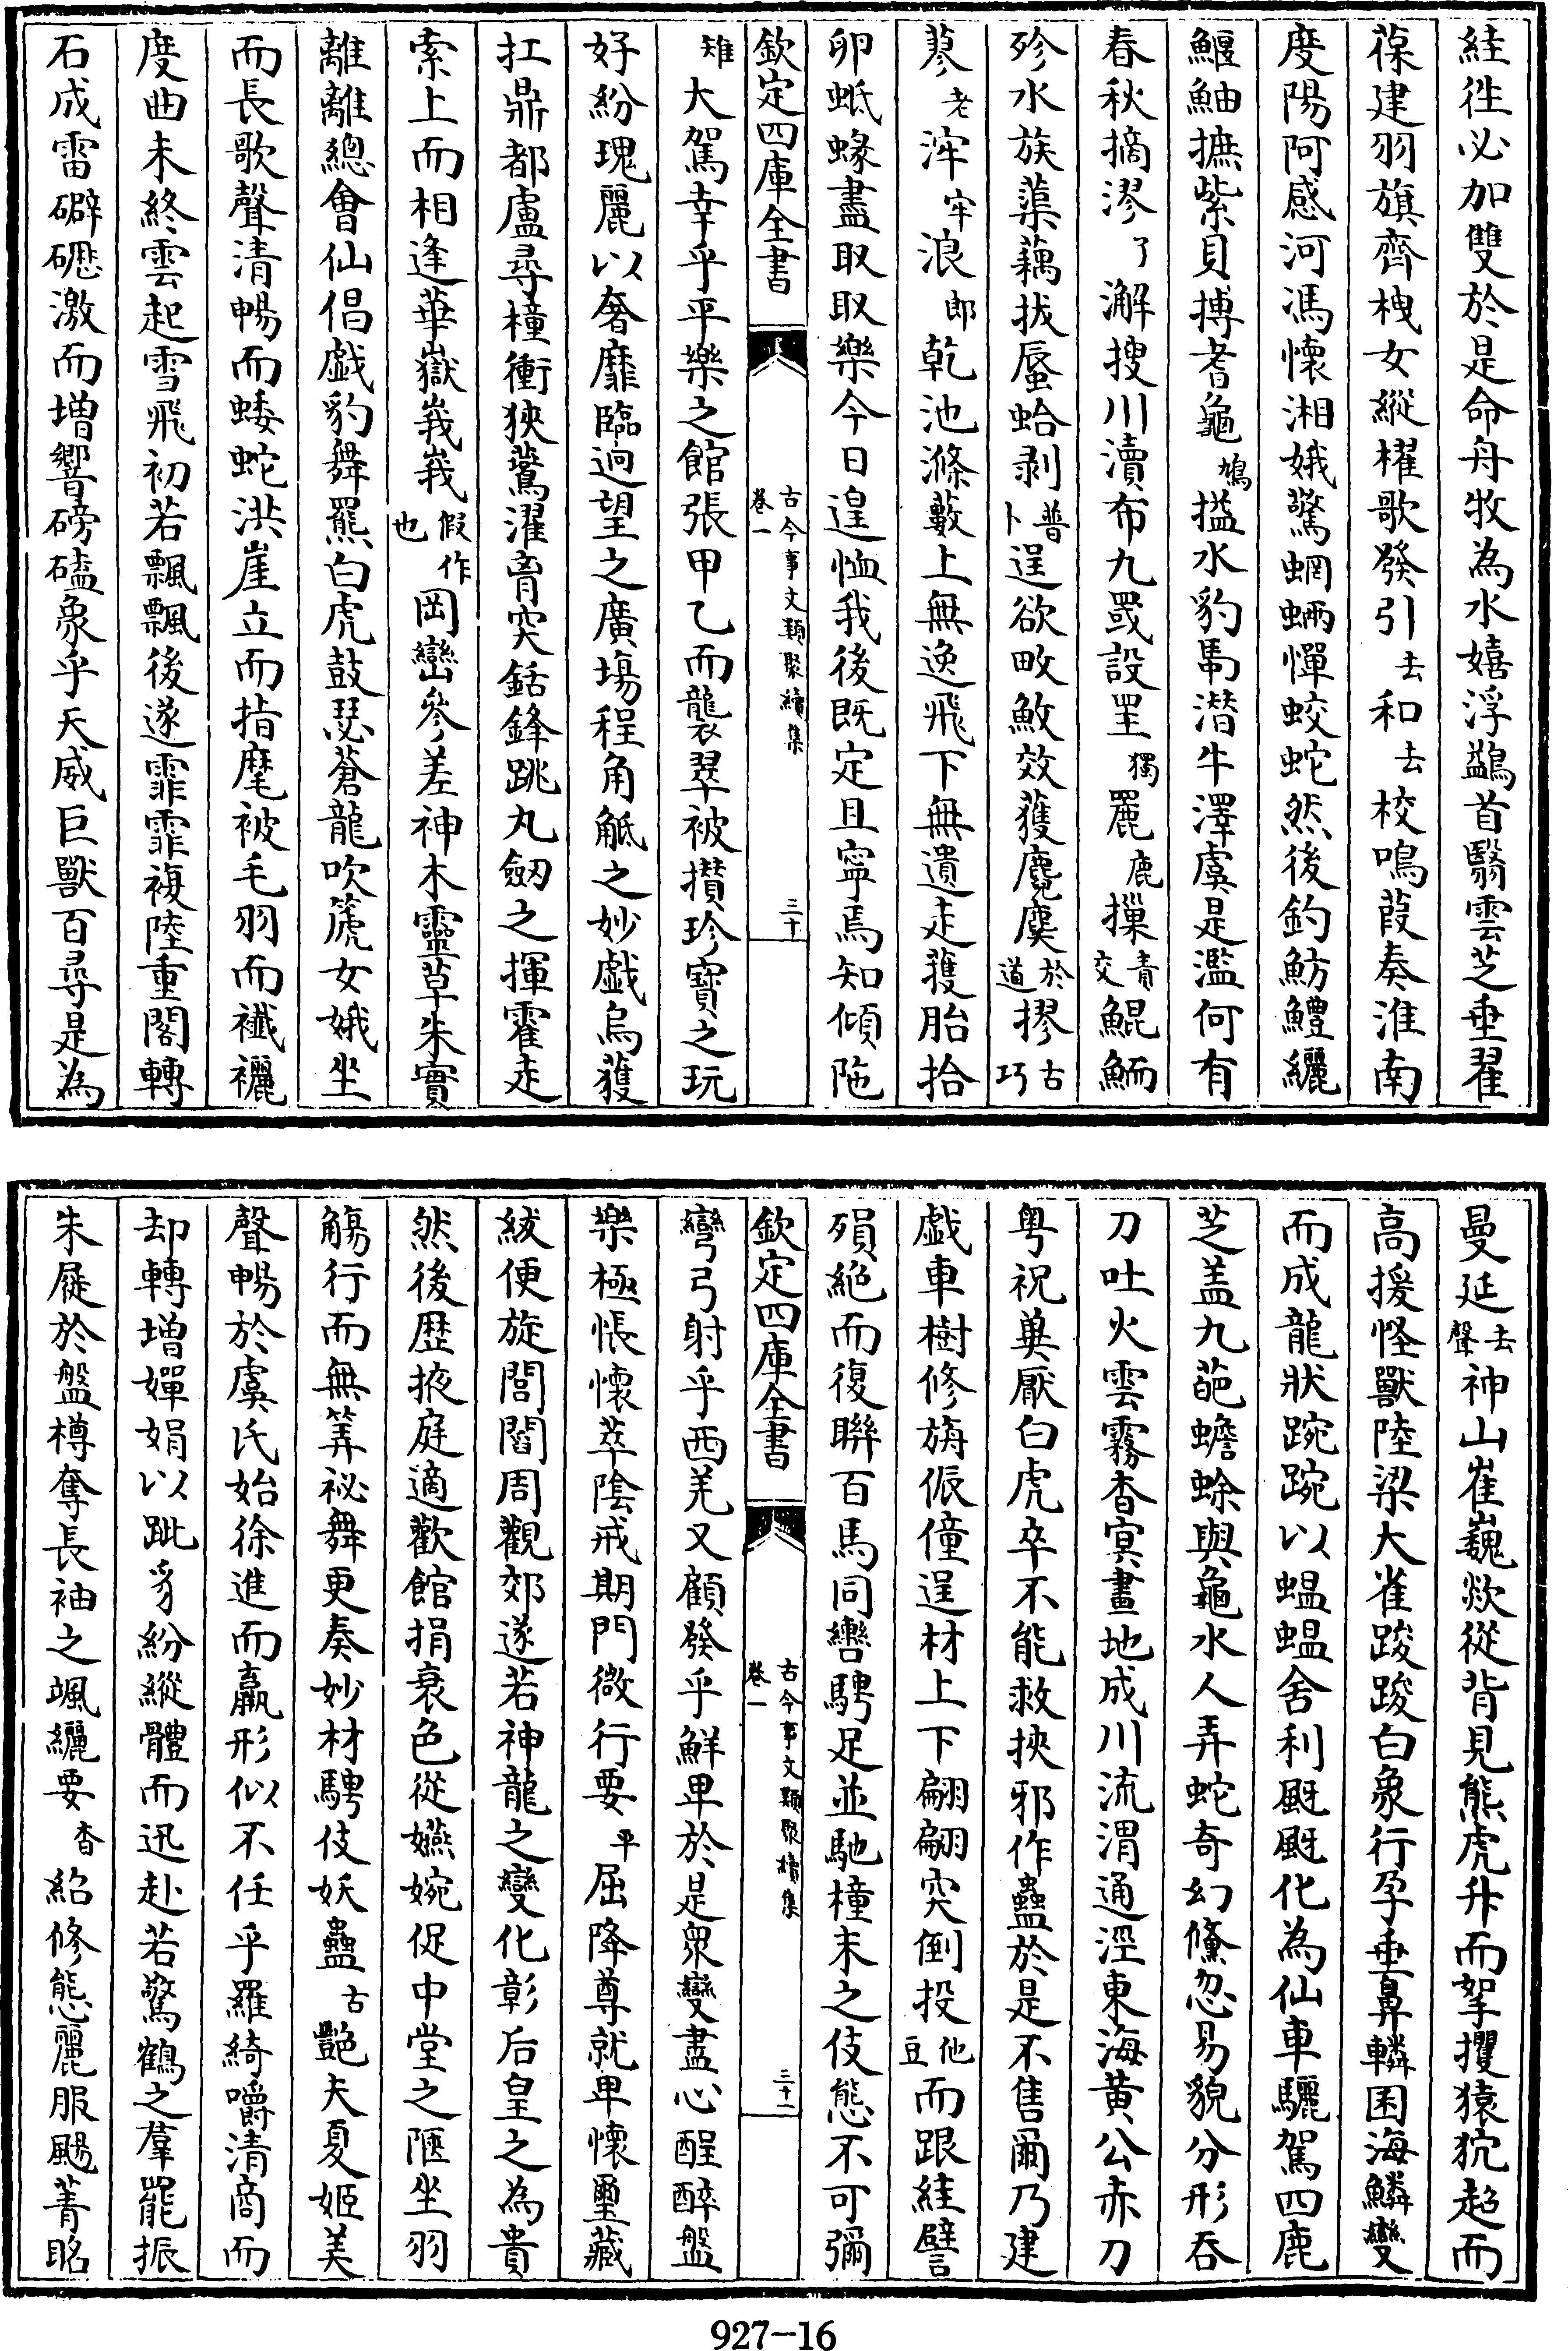 絓徃必加雙於是命舟牧為水嬉浮鷁首翳雲芝垂翟
葆建羽旗齊栧女縱櫂歌發引去和去校鳴葭奏淮南
度陽阿感河馮懷湘娥驚蝄蜽憚蛟蛇然後釣魴鱧纚
鰋鮋摭紫貝搏耆龜鳩搤水豹馽潜牛澤虞是濫何有
春秋摘漻了澥搜川瀆布九罭設罜獨麗鹿摷責交鯤鮞
殄水族蕖藕拔蜃蛤剥普卜逞欲畋䱷效獲麑䴠於道摎古巧
蓼老浶牢浪郎乾池滌藪上無逸飛下無遺走獲胎拾
卵蚳蝝盡取取樂今日遑恤我後既定且寧焉知傾陁
欽定四庫全書 古今事文類聚續集 卷一 三十
雉大駕幸乎平樂之館張甲乙而襲翠被攅珍寶之玩
好紛瑰麗以奢靡臨迥望之廣場程角觝之妙戯烏獲
扛鼎都盧尋橦衝狹鷰濯胷突銛鋒跳丸劒之揮霍走
索上而相逢華嶽峩峩假作也岡巒參差神木靈草朱實
離離總會仙倡戯豹舞羆白虎鼓瑟蒼龍吹篪女娥坐
而長歌聲清暢而蜲蛇洪崖立而指麾被毛羽而襳襹
度曲未終雲起雪飛初若飄飄後遂霏霏複陸重閣轉
石成雷礔礰激而増響磅礚象乎天威巨獸百尋是為
曼延去聲神山崔巍欻從背見熊虎升而挐攫猿狖超而
高援怪獸陸梁大雀踆踆白象行孕垂鼻轔囷海鱗變
而成龍狀踠踠以蝹蝹舍利颬颬化為仙車驪駕四鹿
芝盖九葩蟾蜍與龜水人弄蛇奇幻儵忽易貌分形吞
刀吐火雲霧杳冥畫地成川流渭通涇東海黄公赤刀
粤祝冀厭白虎卒不能救挾邪作蠱於是不售爾乃建
戯車樹修旃侲僮逞材上下翩翩突倒投他豆而跟絓譬
殞絶而復聯百馬同轡騁足並馳橦末之伎態不可彌
欽定四庫全書 古今事文類聚續集 卷一 三十一
彎弓射乎西羌又顧發乎鮮卑於是衆變盡心酲醉盤
樂極悵懷萃陰戒期門微行要平屈降尊就卑懷璽藏
紱便旋閭閻周觀郊遂若神龍之變化彰后皇之為貴
然後歴掖庭適歡館捐衰色從嬿婉促中堂之陿坐羽
觴行而無筭祕舞更奏妙材騁伎妖蠱古艷夫夏姬美
聲暢於虞氏始徐進而羸形似不任乎羅綺嚼清商而
却轉増嬋娟以跐豸紛縱體而迅赴若驚鶴之羣罷振
朱屣於盤樽奪長袖之颯纚要杳紹修態麗服颺菁眳